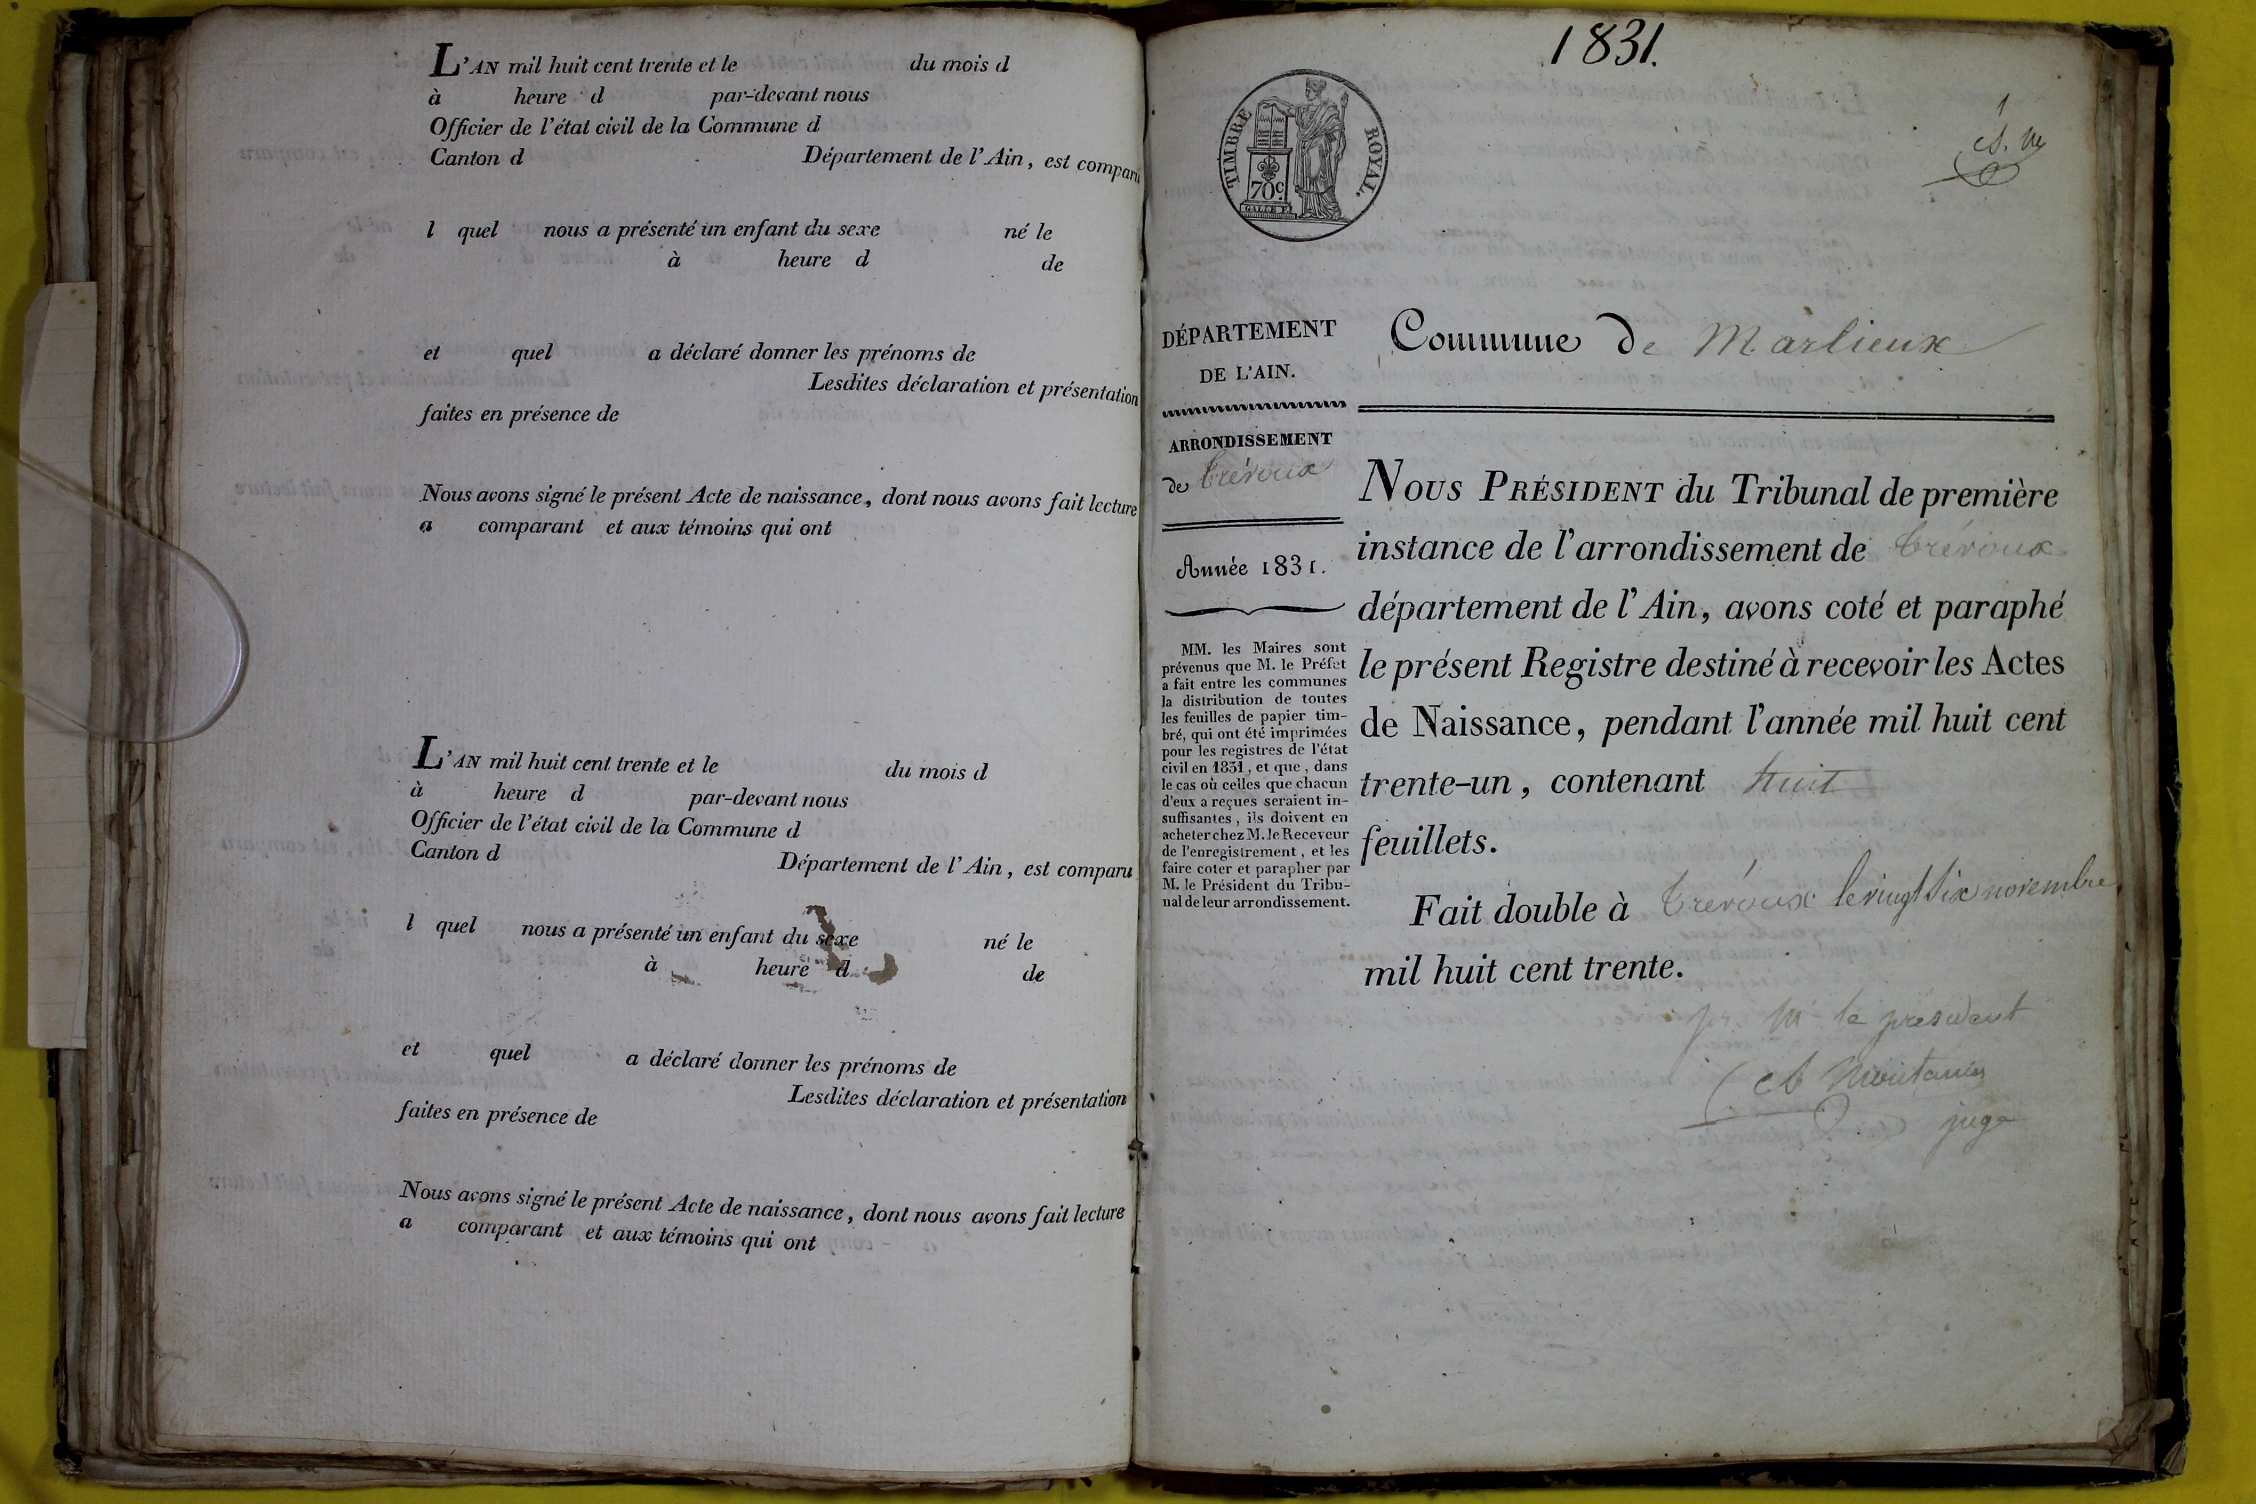 L'AN mil huit cent trente et le du mois d
à heure d par-devant nous
Officier de l'état civil de la Commune d
Canton d Département de l'Ain, est comparu
l quel nous a présenté un enfant du sexe né le
à heure d de
et quel a déclaré donner les prénoms de
Lesdites déclaration et présentation
faites en présence de
Nous avons signé le présent Acte de naissance, dont nous avons fait lecture
a comparant et aux témoins qui ont
L'AN mil huit cent trente et le du mois d
à heure d par-devant nous
Officier de l'état civil de la Commune d
Canton d Département de l'Ain, est comparu
l quel nous a présenté un enfant du sexe né le
à heure d de
et quel a déclaré donner les prénoms de
Lesdites déclaration et présentation
faites en présence de
Nous avons signé le présent Acte de naissance, dont nous avons fait lecture
a comparant et aux témoins qui ont
1831.
1
TIMBRE ROYAL.
70c
DÉPARTEMENT
DE L'AIN.
ARRONDISSEMENT
de Trévoux
Année 1831.
MM. les Maires sont
prévenus que M. le Préfet
a fait entre les communes
la distribution de toutes
les feuilles de papier tim-
bré, qui ont été imprimées
pour les registres de l'état
civil en 1831, et que, dans
le cas où celles que chacun
d'eux a reçues seraient in-
suffisantes, ils doivent en
acheter chez M. le Receveur
de l'enregistrement, et les
faire coter et parapher par
M. le Président du Tribu-
nal de leur arrondissement.
Commune de Marlieux
NOUS PRÉSIDENT du Tribunal de première
instance de l'arrondissement de Trévoux
département de l'Ain, avons coté et paraphé
le présent Registre destiné à recevoir les Actes
de Naissance, pendant l'année mil huit cent
trente-un, contenant huit
feuillets.
Fait double à Trévoux le vingt six novembre
mil huit cent trente.
pr. Mr le président
juge